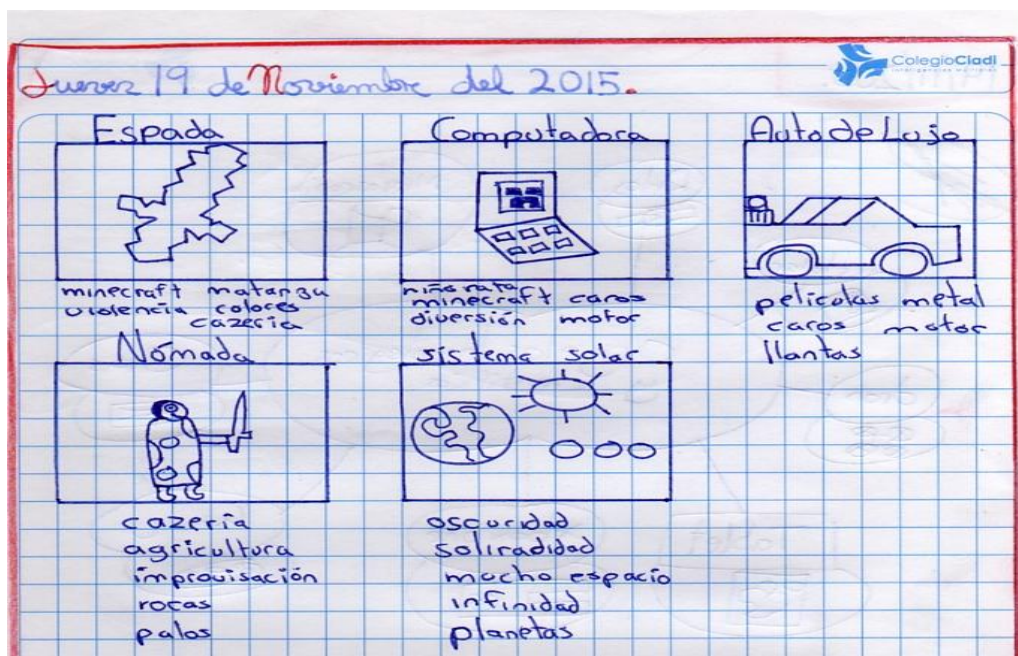 ColegioCladi
Jueves 19 de Noviembre del 2015.
Espada
minecraft matanza
violencia colores
cazeria
Computadora
niño rata
minecraft caros
diversión motor
Auto de Lujo
peliculas metal
caros motor
llantas
Nómada
cazería
agricultura
improvisación
rocas
palos
sistema solar
oscuridad
soliradidad
mucho espacio
infinidad
planetas